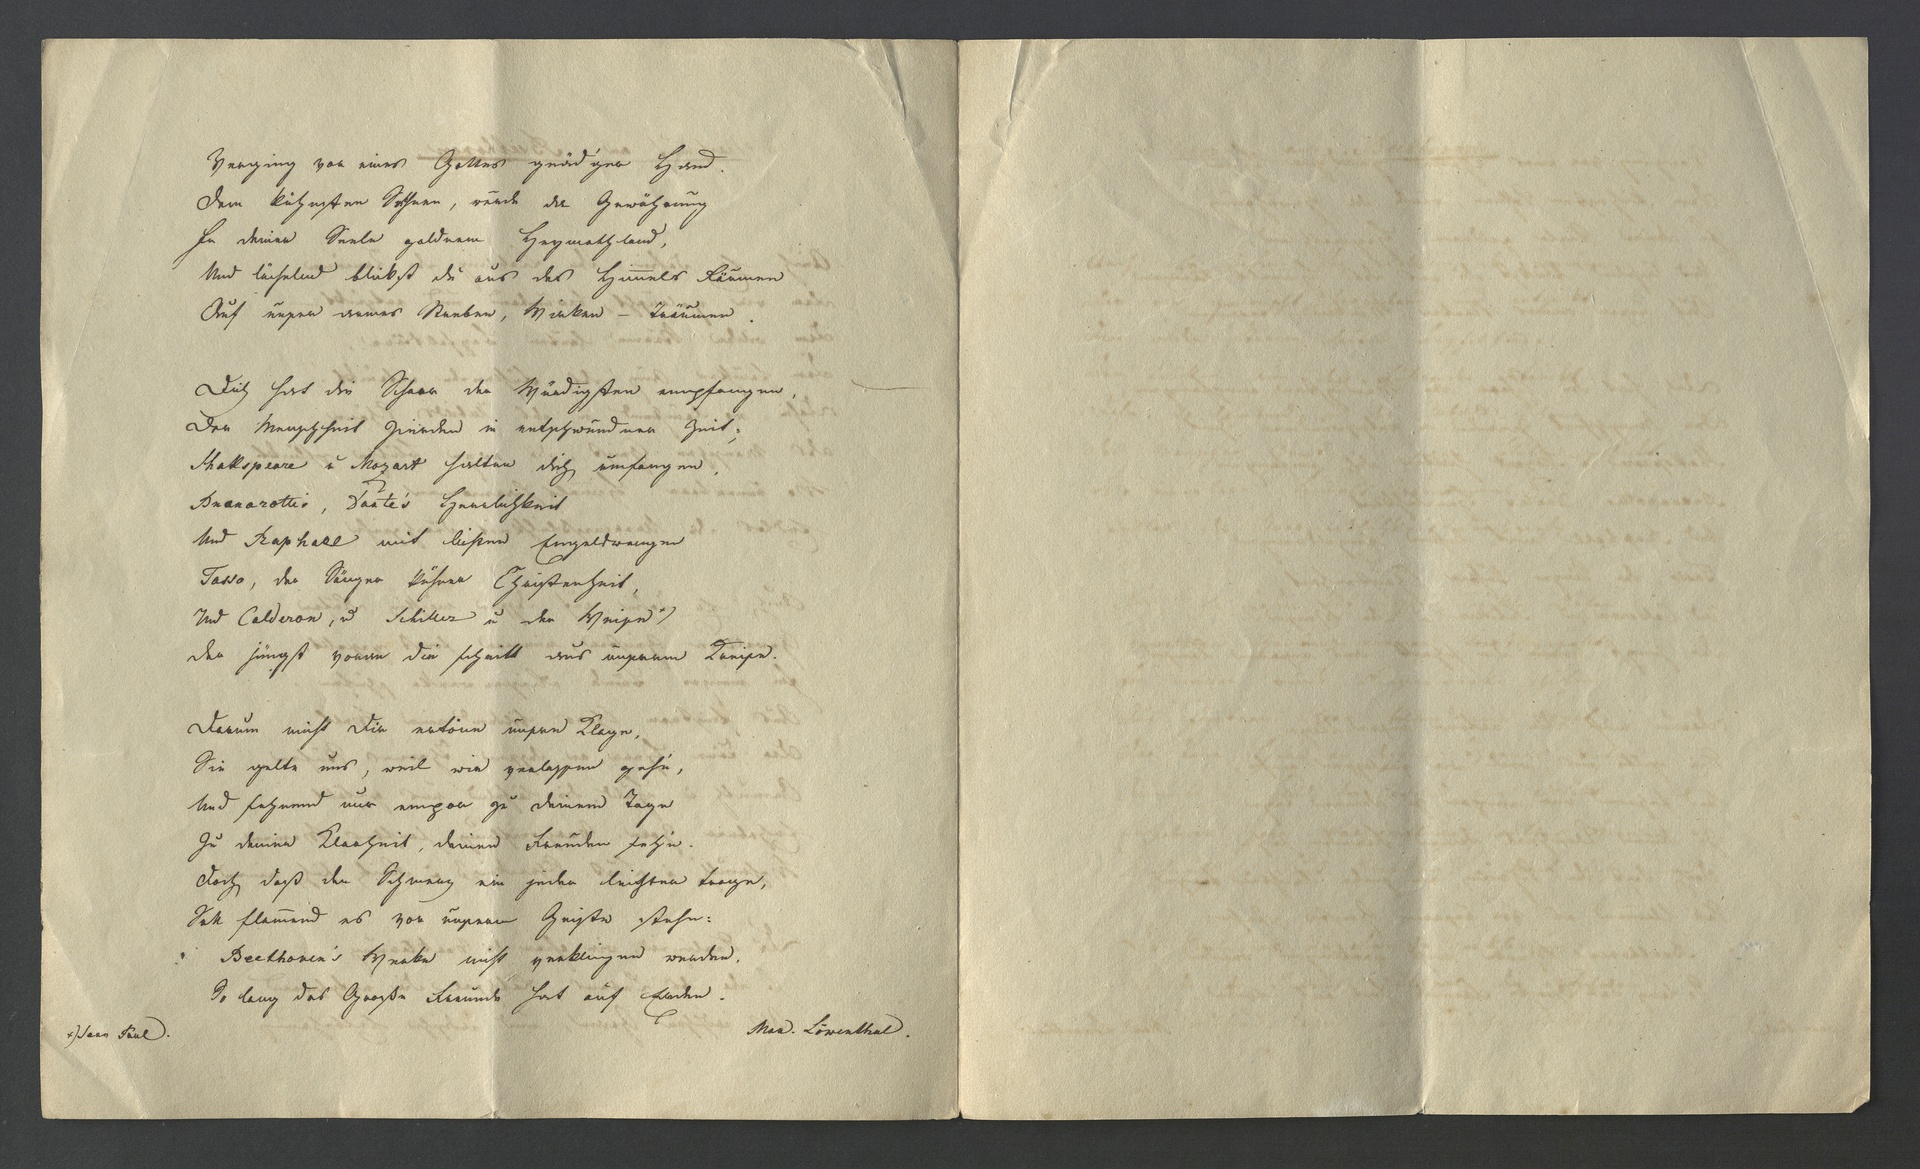 Verging vor eines Gottes gnäd'ger Hand.
Dem kühnsten Sehnen, wurde da Gewährung
In deiner Seele goldnem Heymathland,
Und lächelnd blickst du aus des Himmels Räumen
Auf unser armes Streben, Wirken – Träumen.
Dich hat die Schaar der Würdigsten empfangen,
Der Menschheit Zierden in entschwundner Zeit;
Shakspeare u Mozart halten dich umfangen,
Buonarotti's, Dante's Herrlichkeit
Und Raphael mit lichten Engelswangen
Tasso, der Sänger kühner Christenheit,
Und Calderon, u Schiller u der Weise *)
Der jüngst voran dir schritt aus unserm Kreise.
Darum nicht Dir ertöne unsre Klage,
Sie gelte uns, weil wir verlassen gehn,
Und sehnend nur empor zu deinem Tage
Zu deiner Klarheit, deinen Freuden sehn.
Doch daß den Schmerz ein jeder leichter trage,
Seh flammend es vor unserm Geiste stehn:
Beethoven's Werke nicht verklingen werden,
So lang das Große Freunde hat auf Erden.
*) Jean Paul.
Max. Löwenthal.